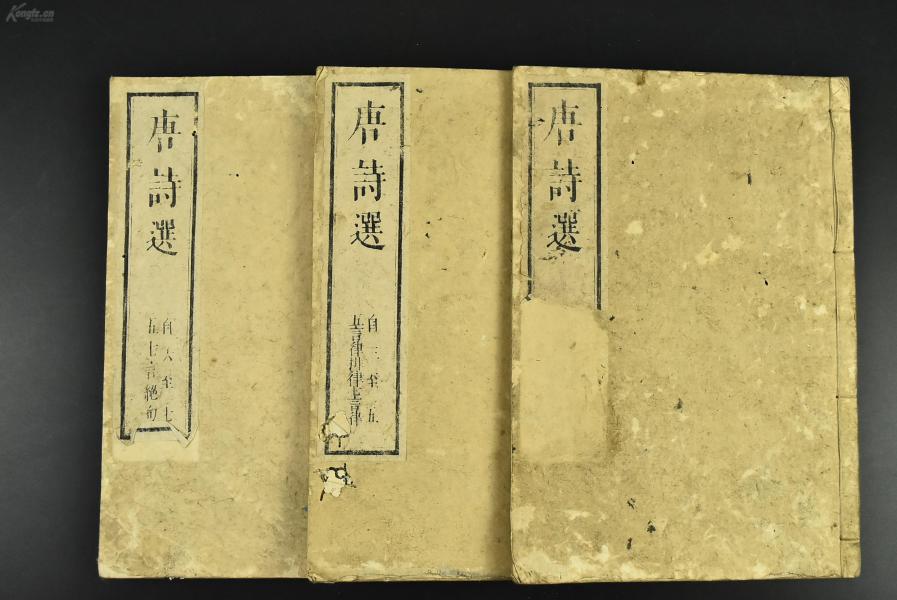 Kongfz.cn
唐詩選
自六至七
五七言絶句
唐詩選
自三至五
五言律排律七言律
唐詩選